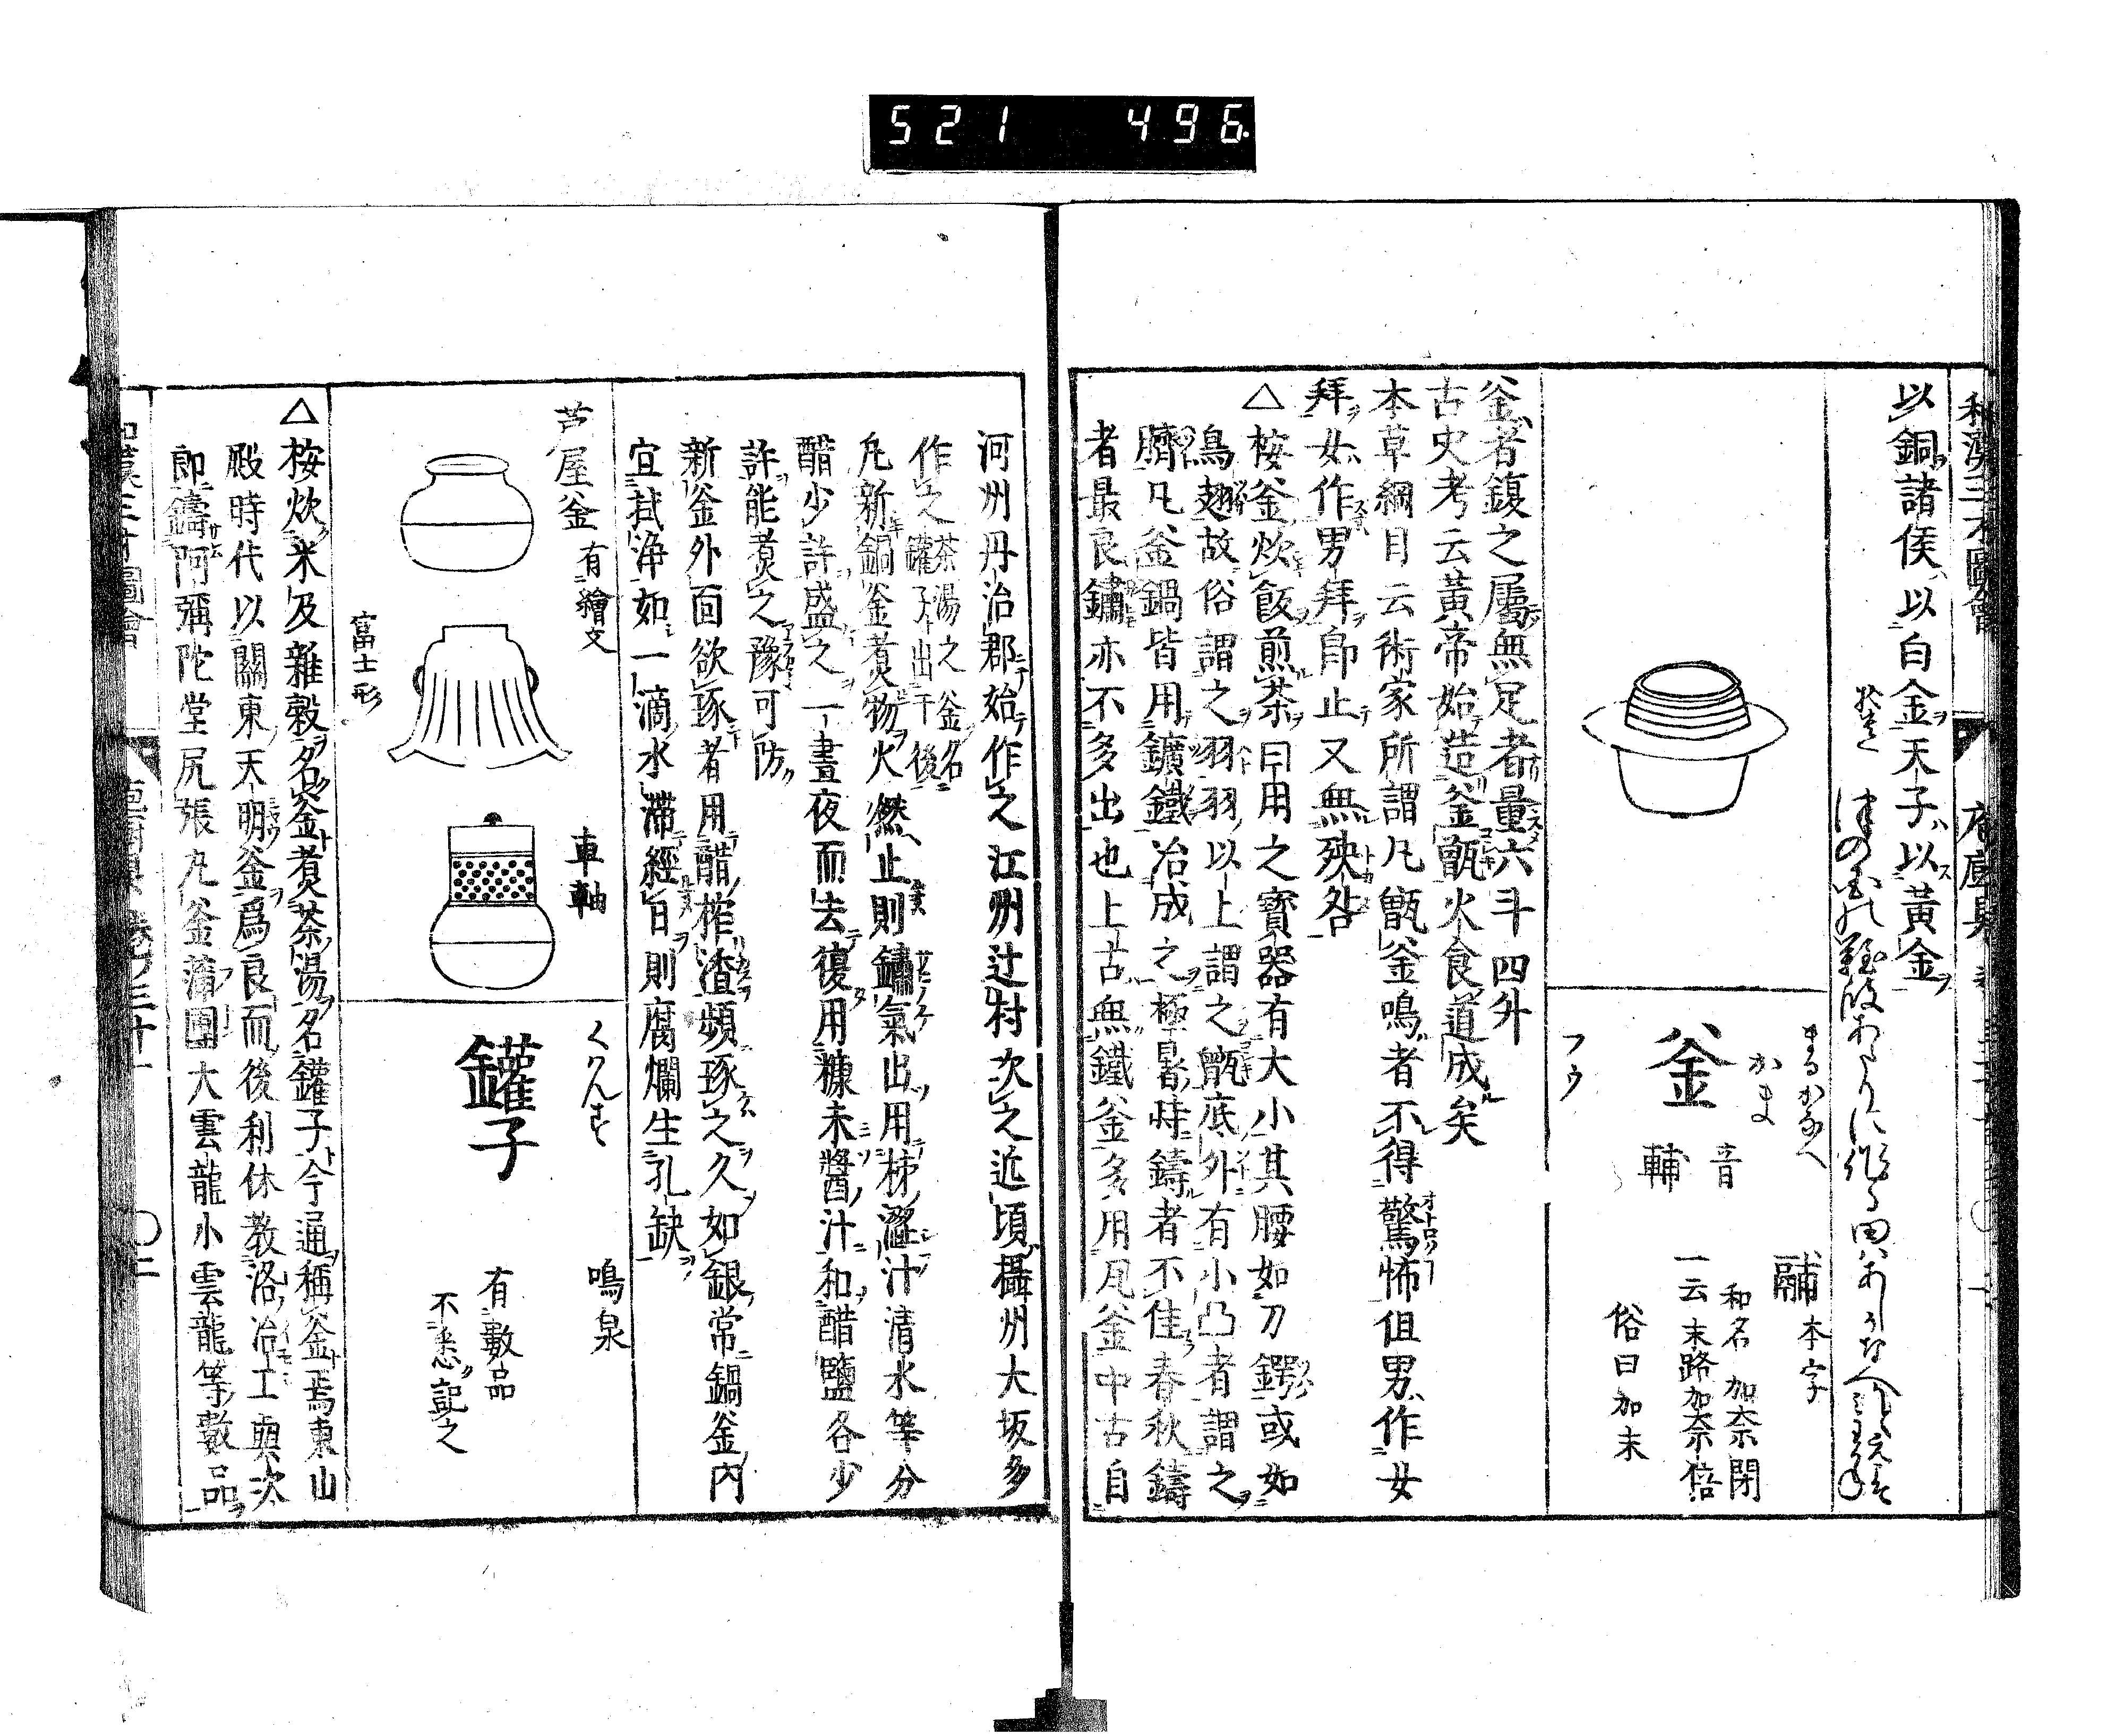 521 496
和漢三才圖會
庖廚具
以銅諸侯以白金天子以黃金
釜
まるかなへ
かま
フウ
音輔
鬴本字
和名加奈閉
一云末路加奈倍
俗曰加末
釜者鍑之屬無足者量六斗四升
古史考云黃帝始造釜甑火食道成矣
本草綱目云術家所謂凡甑釜鳴者不得驚怖但男作女
拜女作男拜即止又無殃咎
△按釜炊飯煎茶日用之寳器有大小其腰如刀鍔或如
鳥翅故俗謂之羽羽以上謂之甑底外有小凸者謂之
臍凡釜鍋皆用鑛鐵冶成之極暑時鑄者不佳春秋鑄
者最良鏽亦不多出也上古無鐵釜多用瓦釜中古自
河州丹治郡始作之江州辻村次之近頃攝州大坂多
作之茶湯之釜名罐子出于後
凡新銅釜煮物火燃止則鏽氣出用柹澀汁清水等分
醋少許盛之一晝夜而去復用糠未醬汁和醋鹽各少
許能煮之豫可防
新釜外面欲琢者用醋榨渣頻琢之久如銀常鍋釜內
宜拭淨如一滴水滯經日則腐爛生孔缺
芦屋釜 有繪文
富士形
車軸
くわんす
罐子
鳴泉
有數品
不悉記之
△按炊米及雜穀名釜煮茶湯名罐子今通稱釜焉東山
殿時代以關東天明釜爲良而後利休教洛冶工與次
郎鑄阿彌陀堂尻張丸釜蒲團大雲龍小雲龍等數品
和漢三才圖會
庖廚具 卷之三十一
〇二